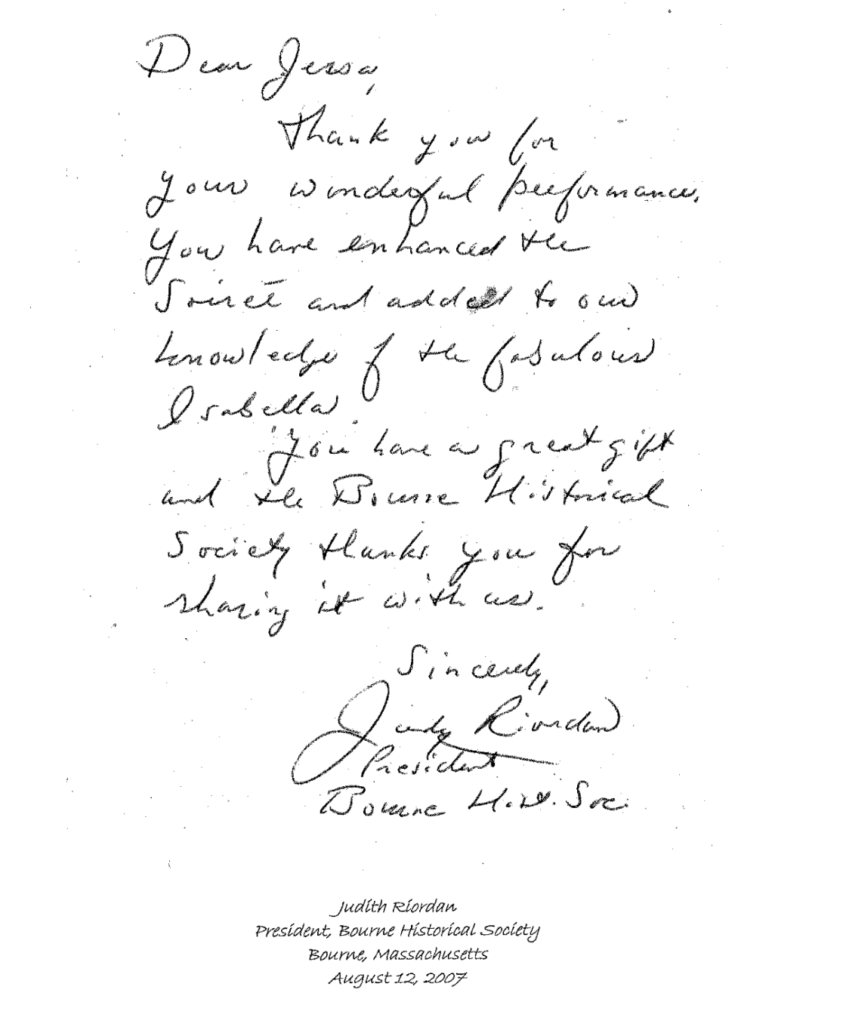 Dear Jersa,
Thank you for
your wonderful performance.
You have enhanced the
Soireé and added to our
knowledge of the fabulous
Isabella.
You have a great gift
and the Bourne Historical
Society thanks you for
sharing it with us.
Sincerely,
Judy Riordan
President
Bourne Hist. Soc.
Judith Riordan
President, Bourne Historical Society
Bourne, Massachusetts
August 12, 2007